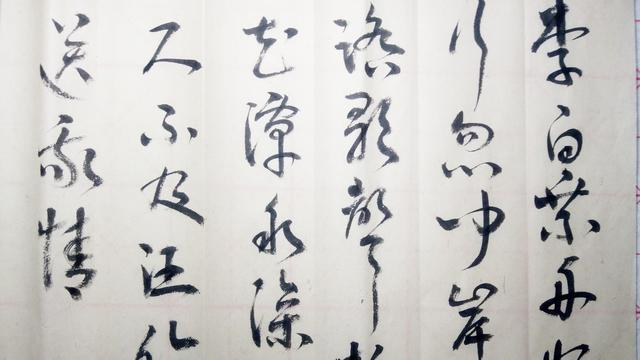 李白乘舟
行忽聞岸
踏歌聲
花潭水深
尺不及汪
送我情